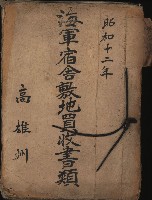 昭和十二年
海軍宿舎敷地買収書類
高雄州